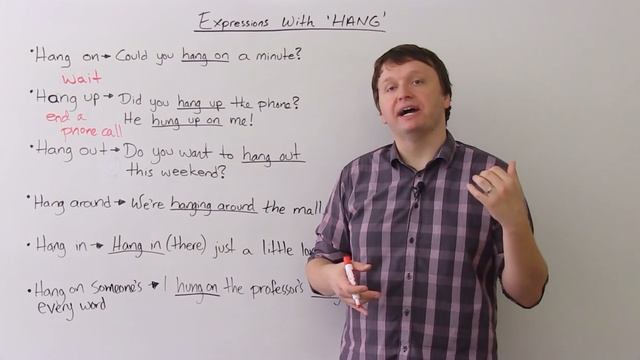 Expressions with 'HANG'
• Hang on → Could you hang on a minute?
wait
• Hang up → Did you hang up the phone?
end a
phone call
He hung up on me!
• Hang out → Do you want to hang out
this weekend?
• Hang around → We're hanging around the mall
• Hang in → Hang in (there) just a little
• Hang on someone's → I hung on the professor's
every word